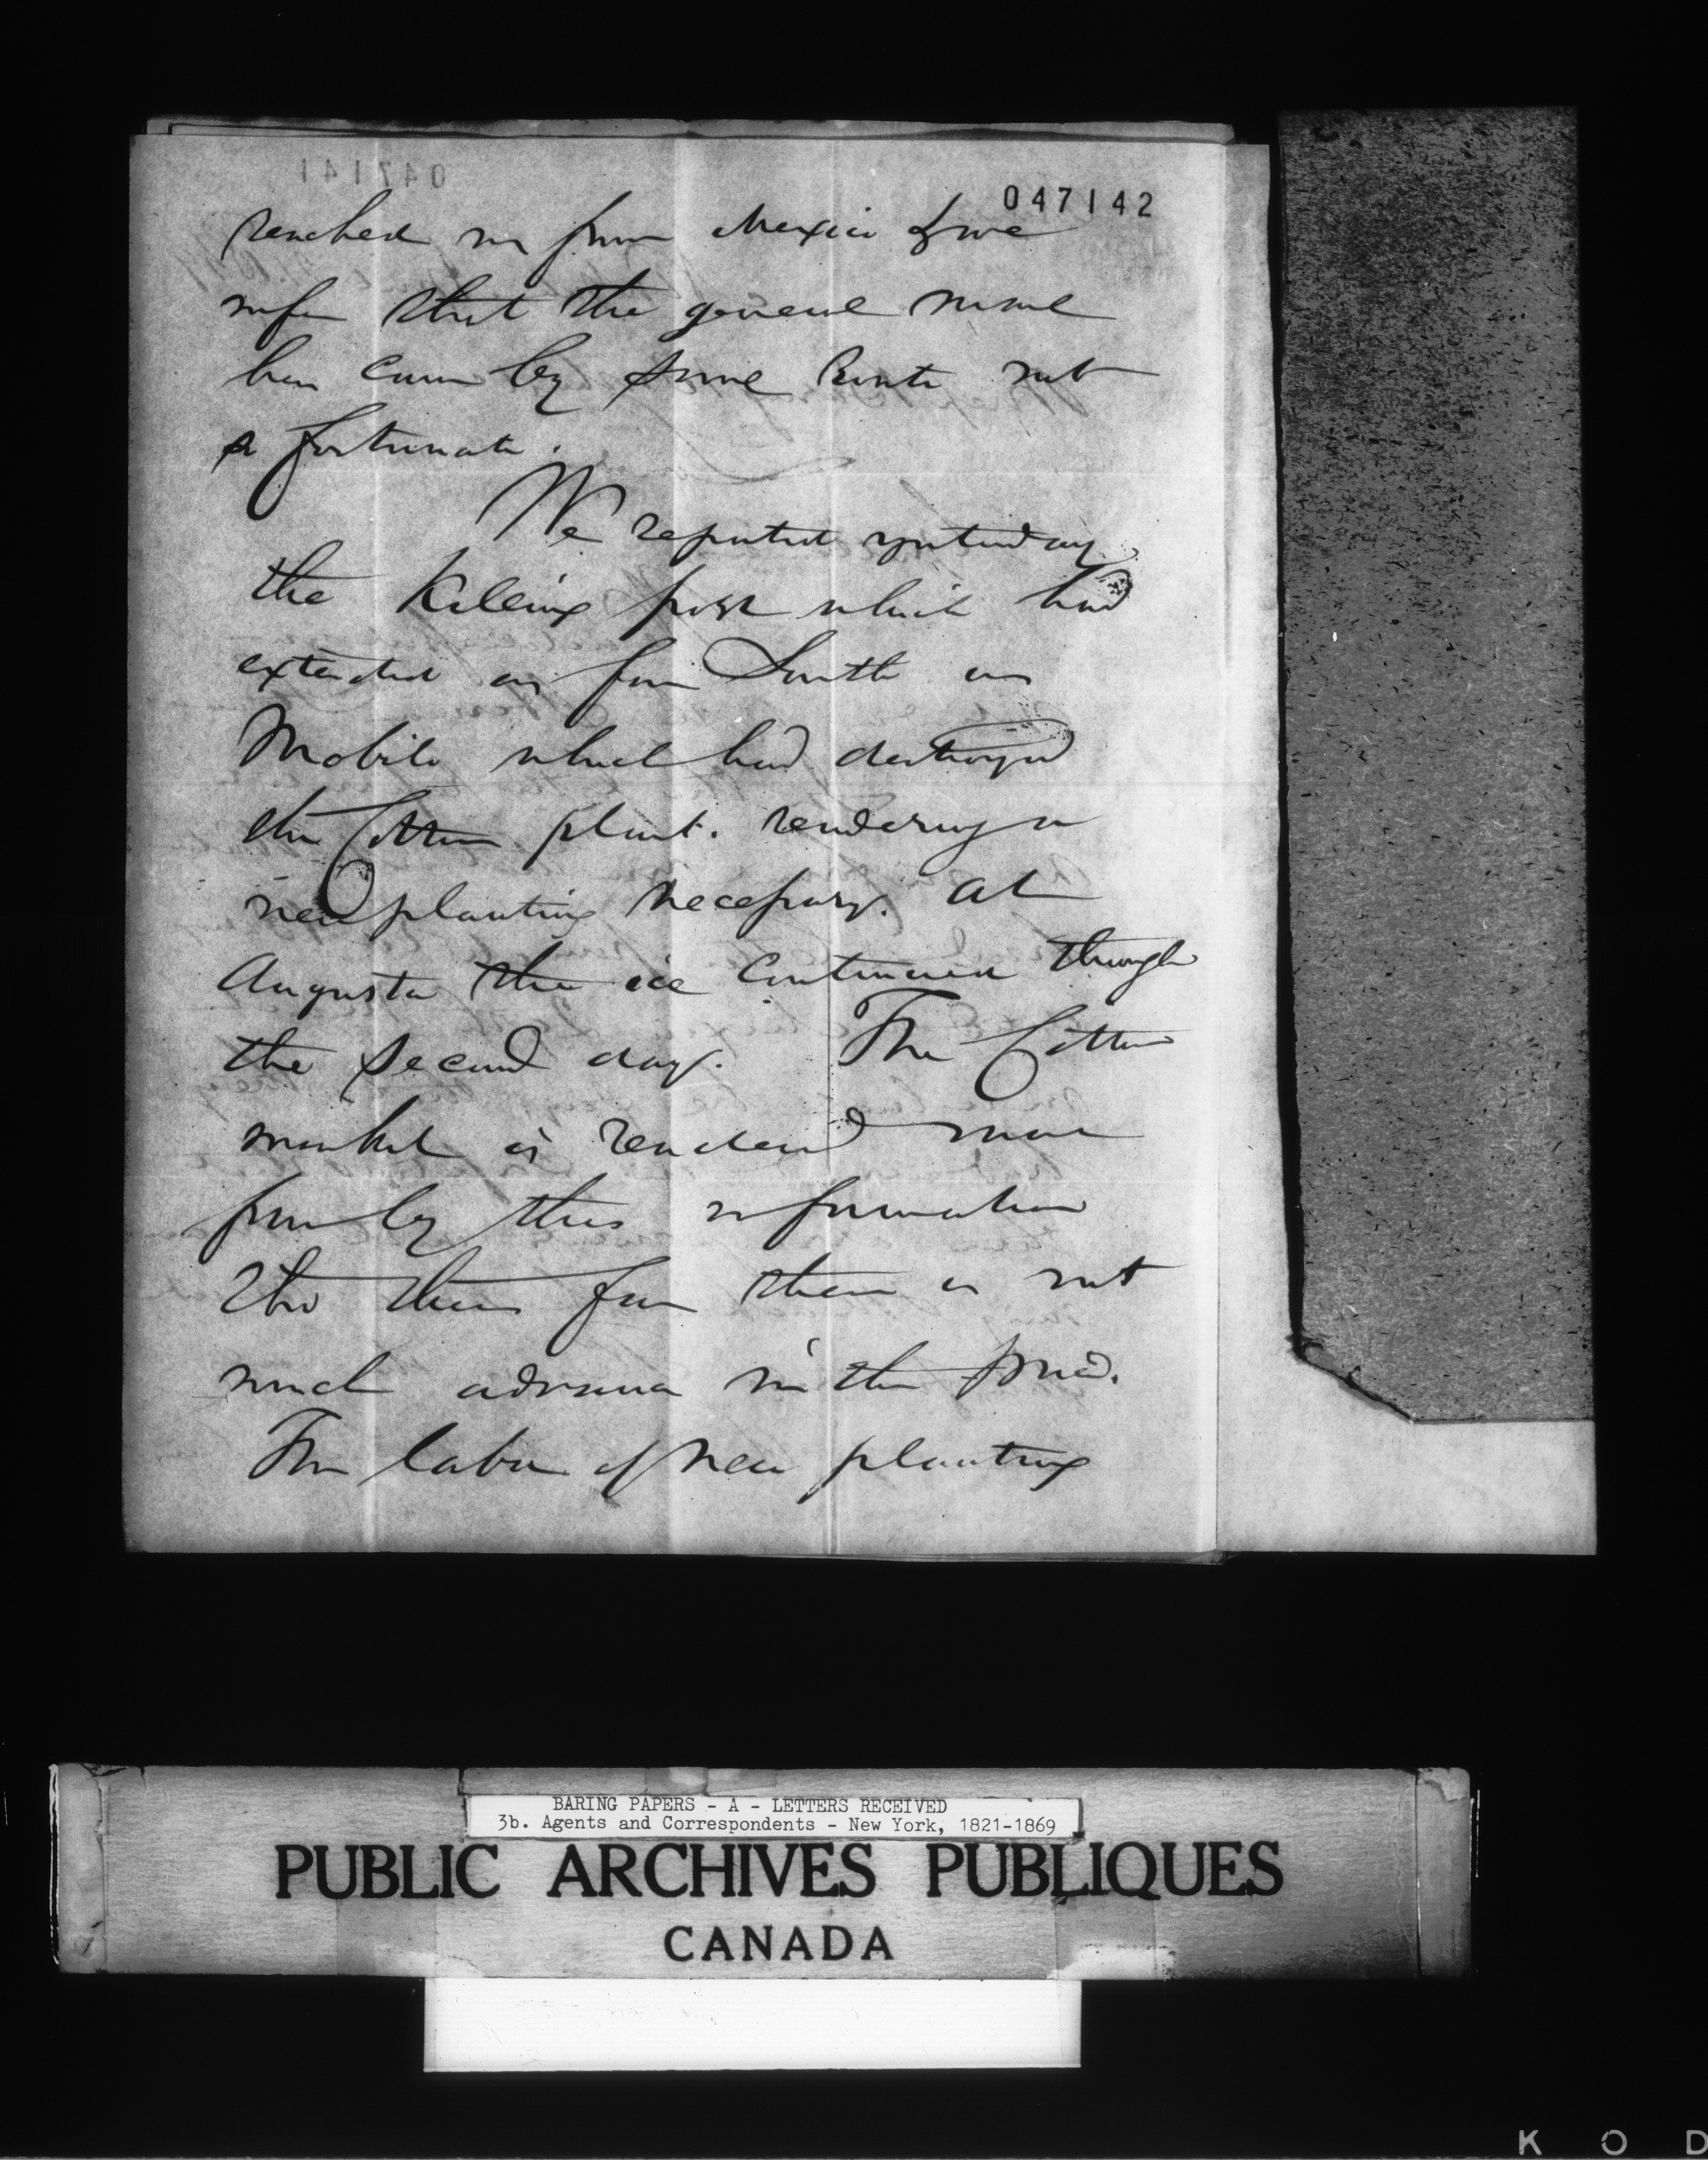 047141
047142
reached us from Mexico & we
infer that the general must
have come by some Route not
so fortunate.
We reported yesterday
the Killing frost which had
extended as far South as
Mobile which had destroyed
the Cotton plant. rendering a
new planting necessary. At
Augusta the ice continued through
the second day. The Cotton
market is rendered more
firm by this information
tho thus far there is not
much advance in the price.
The labor of new planting
BARING PAPERS - A - LETTERS RECEIVED
3b. Agents and Correspondents - New York, 1821-1869
PUBLIC ARCHIVES PUBLIQUES
CANADA
K O D